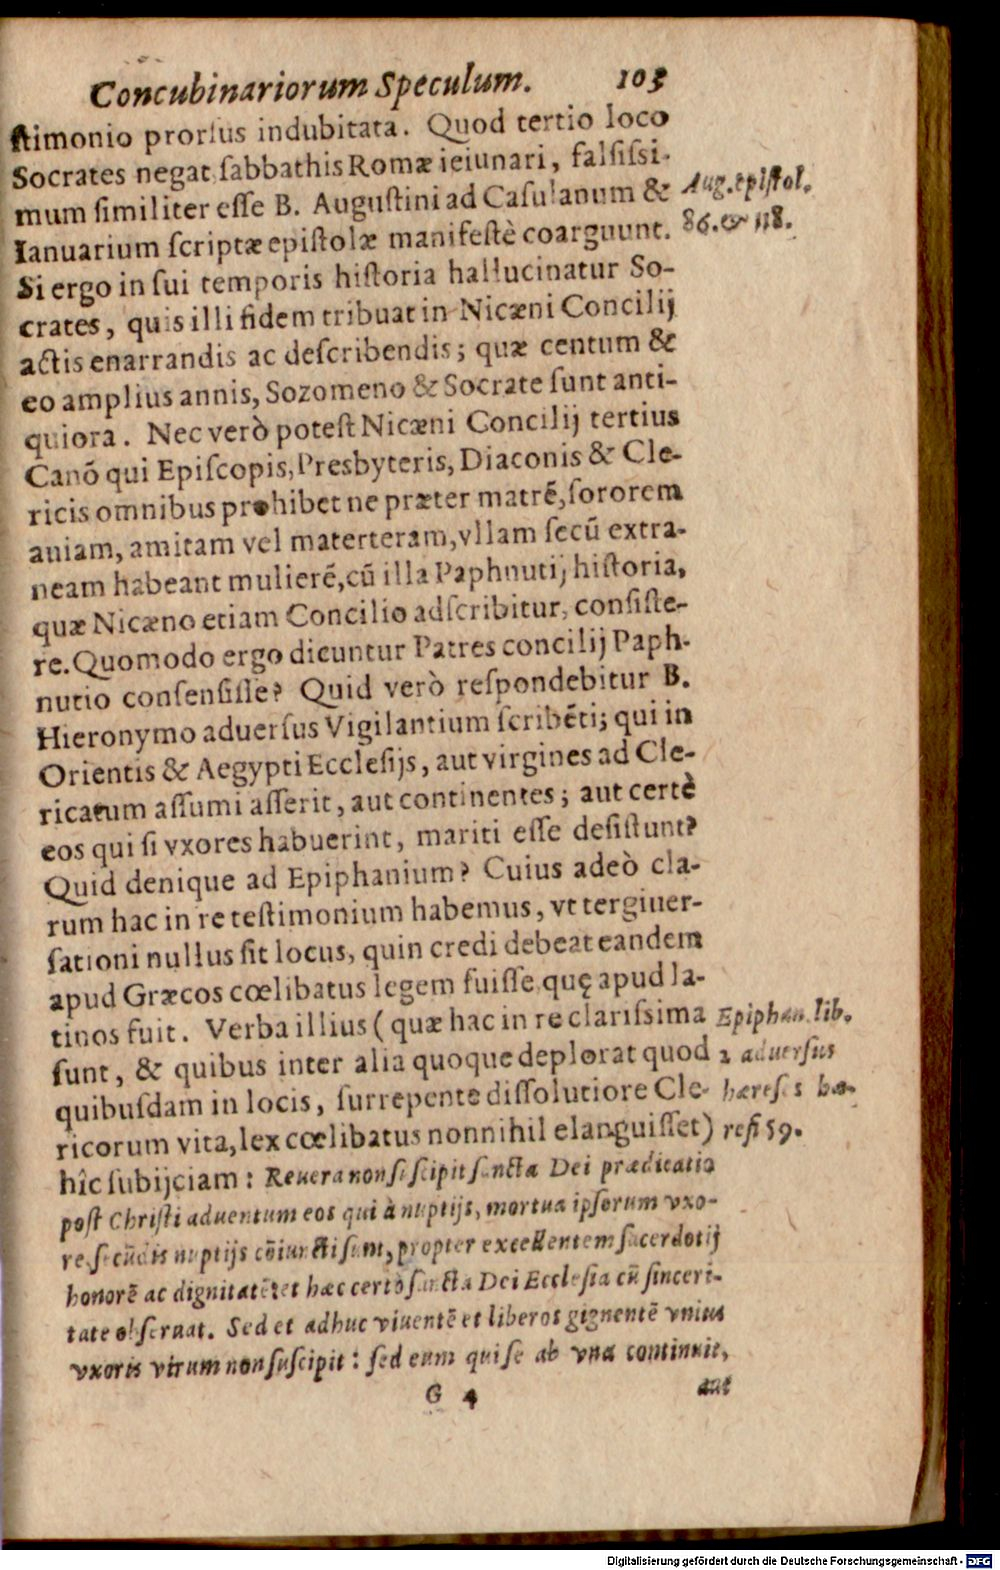 Concubinariorum Speculum. 103
ſtimonio prorſus indubitata. Quod tertio loco
Socrates negat ſabbathis Romæ ieiunari, falſiſsi-
mum ſimiliter eſſe B. Auguſtini ad Caſulanum &
Ianuarium ſcriptæ epiſtolæ manifeſtè coarguunt.
Aug. epiſtol.
86. & 118.
Si ergo in ſui temporis hiſtoria hallucinatur So-
crates, quis illi fidem tribuat in Nicæni Concilij
actis enarrandis ac deſcribendis; quæ centum &
eo amplius annis, Sozomeno & Socrate ſunt anti-
quiora. Nec verò poteſt Nicæni Concilij tertius
Canõ qui Epiſcopis, Presbyteris, Diaconis & Cle-
ricis omnibus prohibet ne præter matrẽ, ſororem
auiam, amitam vel materteram, vllam ſecũ extra-
neam habeant mulierẽ, cũ illa Paphnutij hiſtoria,
quæ Nicæno etiam Concilio adſcribitur, conſiſte-
re. Quomodo ergo dicuntur Patres concilij Paph-
nutio conſenſiſſe? Quid verò reſpondebitur B.
Hieronymo aduerſus Vigilantium ſcribẽti; qui in
Orientis & Aegypti Eccleſijs, aut virgines ad Cle-
ricatum aſſumi aſſerit, aut continentes; aut certè
eos qui ſi vxores habuerint, mariti eſſe deſiſtunt?
Quid denique ad Epiphanium? Cuius adeò cla-
rum hac in re teſtimonium habemus, vt terginer-
ſationi nullus ſit locus, quin credi debeat eandem
apud Græcos cœlibatus legem fuiſſe, quę apud la-
tinos fuit. Verba illius (quæ hac in re clariſsima
ſunt, & quibus inter alia quoque deplorat quod
quibuſdam in locis, ſurrepente diſſolutiore Cle-
ricorum vita, lex cœlibatus nonnihil elanguiſſet)
Epiphan. lib.
2 aduerſus
hæreſes hæ-
reſi 59.
hîc ſubijciam: Reuera non ſuſcipit ſancta Dei prædicatio
poſt Chriſti aduentum eos qui à nuptijs, mortua ipſorum vxo-
re, ſecũdis nuptijs cõiuncti ſunt, propter excellentem ſacerdotij
honorẽ ac dignitatẽ: et hæc certò ſancta Dei Eccleſia cũ ſinceri-
tate obſeruat. Sed et adhuc viuentẽ et liberos gignentẽ vnius
vxoris virum non ſuſcipit: ſed eum qui ſe ab vna continuit,
G 4 aut
Digitalisierung gefördert durch die Deutsche Forschungsgemeinschaft - DFG